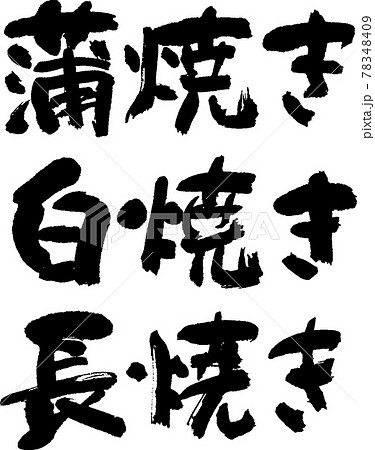 蒲焼き
白焼き
長焼き
pixta.jp - 78348409
PIXTA